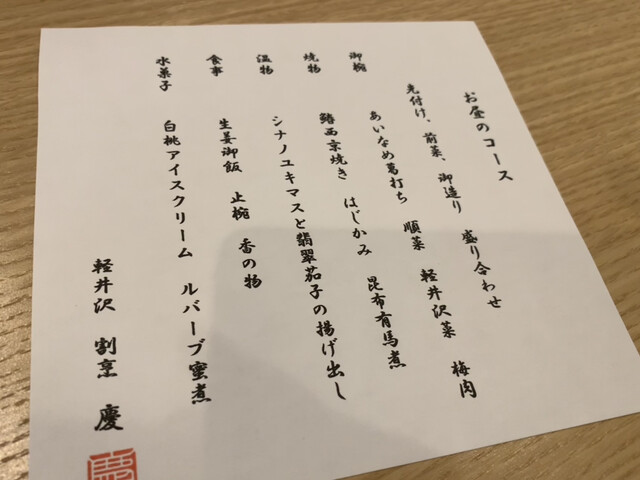 お昼のコース
先付け、前菜、御造り 盛り合わせ
御椀 あいなめ葛打ち 順菜 軽井沢菜 梅肉
焼物 鰆西京焼き はじかみ 昆布有馬煮
温物 シナノユキマスと翡翠茄子の揚げ出し
食事 生姜御飯 止椀 香の物
水菓子 白桃アイスクリーム ルバーブ蜜煮
軽井沢 割烹 慶